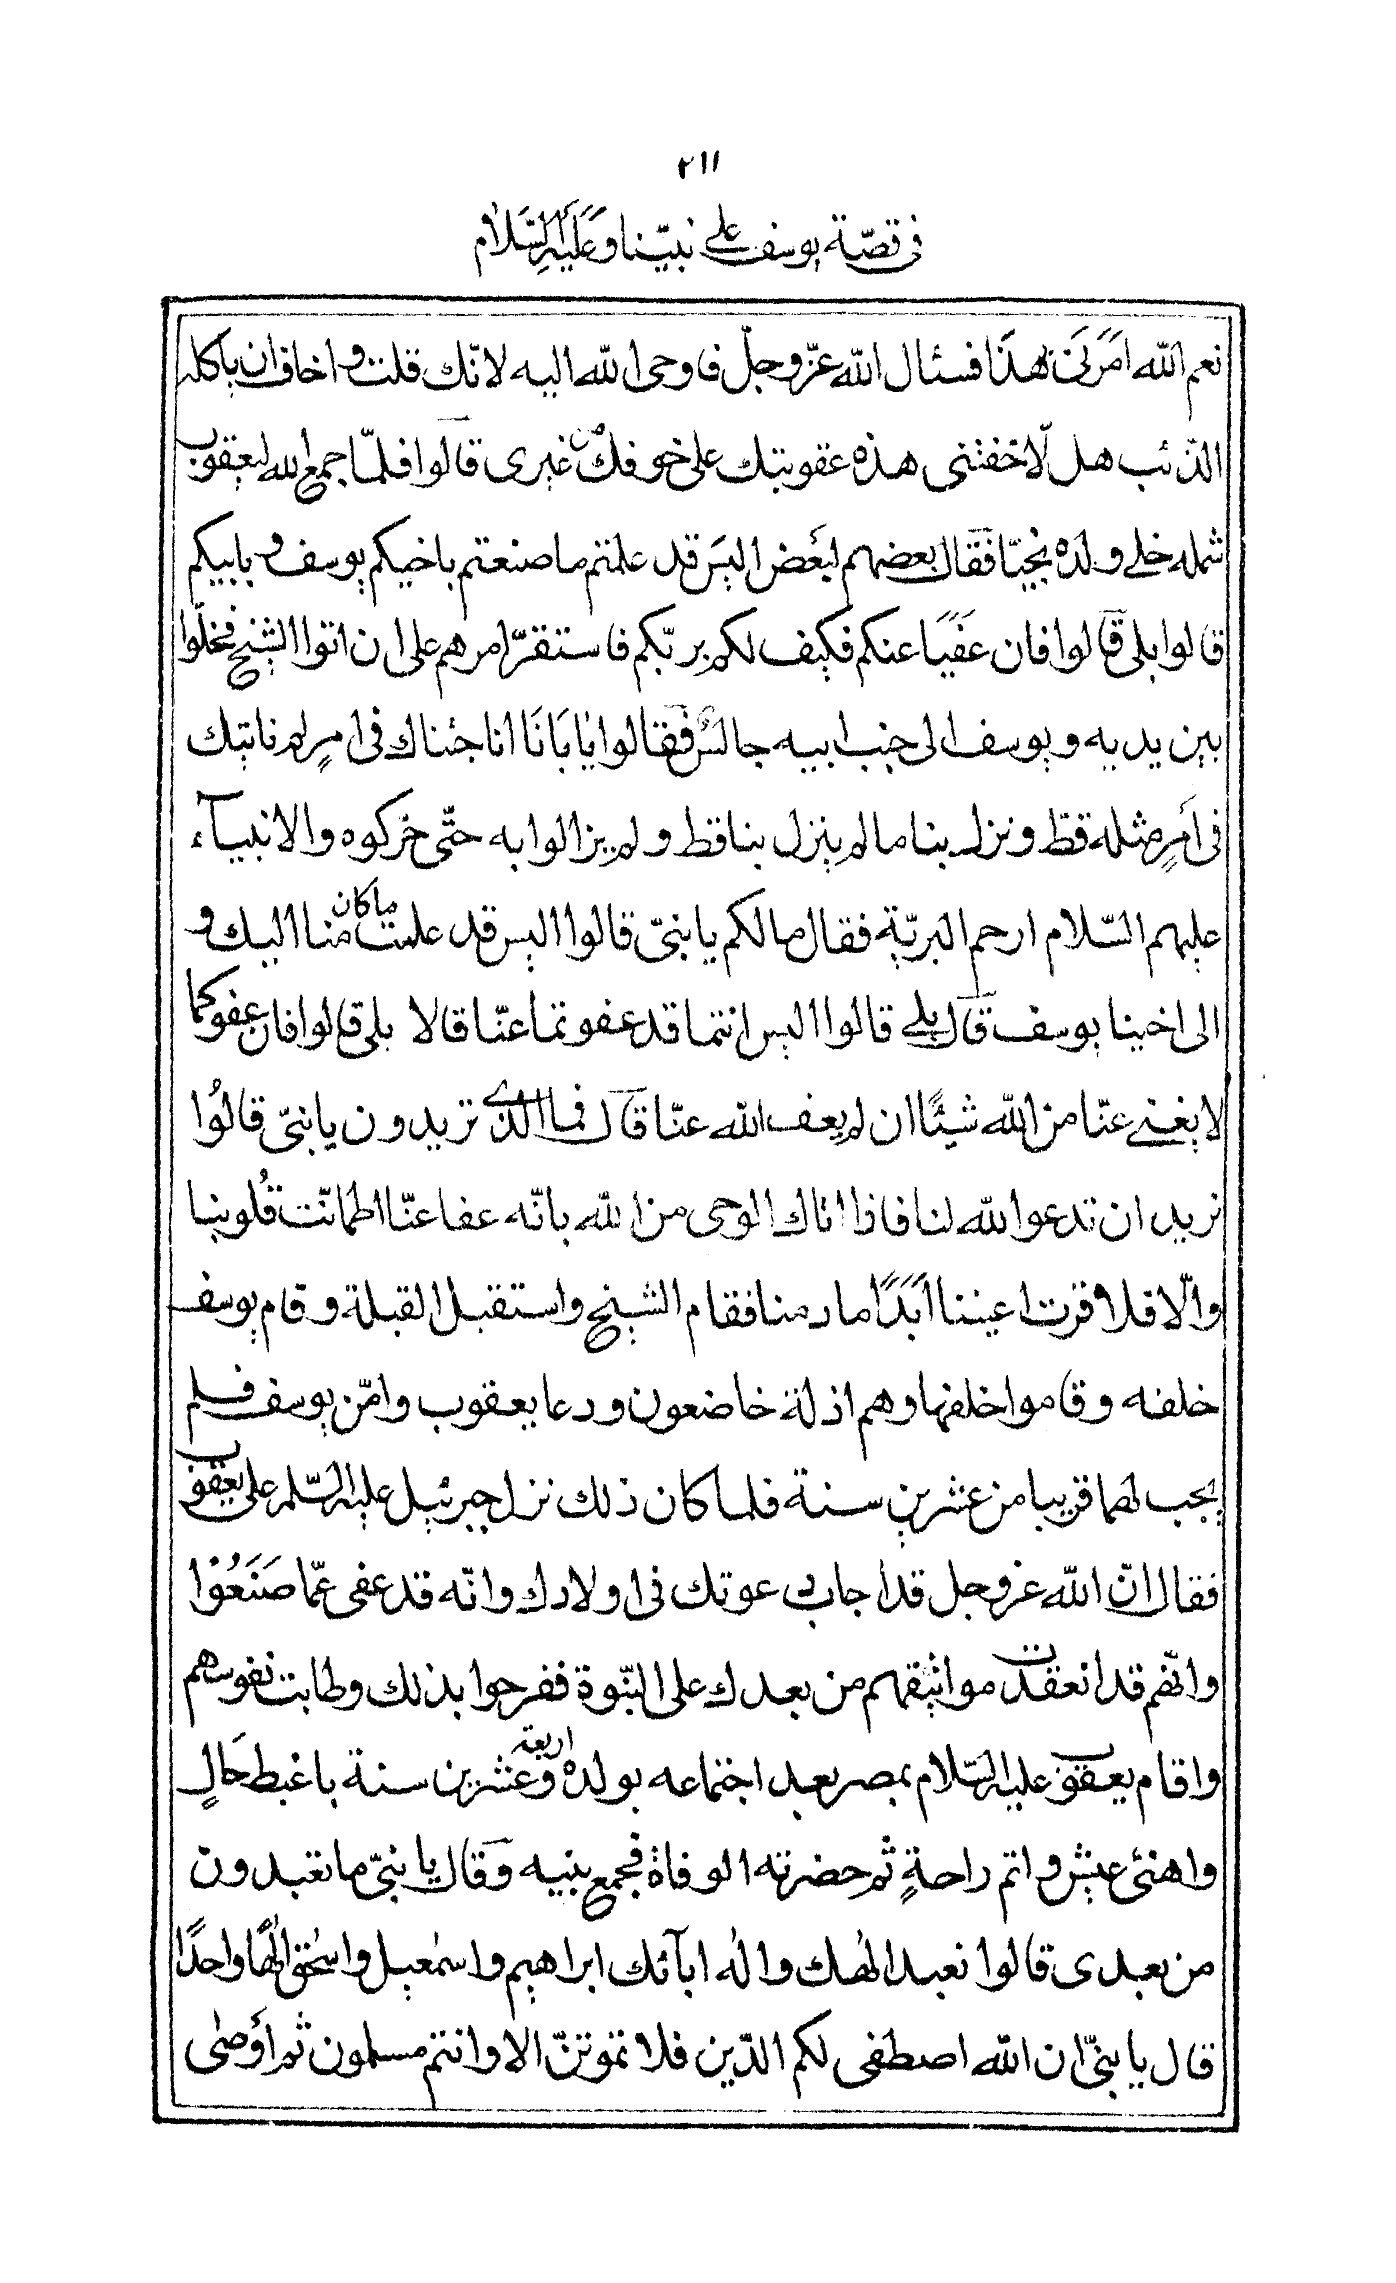 ٢١١
فى قصّة يوسف على نبيّنا وعَلَيْهِ السَّلام
نعم الله اَمَرَنى بهٰذَا فسئال الله عزّ وجلّ فاوحى الله اليه لانّك قلت واخاف ان ياكله
الذّئب هل لا خفتنى هذه عقوبتك على خوفك من غيرى قالوا فلمّا جمع الله ليعقوب
شمله خلى ولده نجيّا فقال بعضهم لبعض اليس قد علمتم ما صنعتم باخيكم يوسف وبابيكم
قالوا بلى قالوا فان عَفَيَا عنكم فكيف لكم بربّكم فاستقرّ امرهم على ان اتوا الشيخ فخلّوا
بين يديه ويوسف الى جنب ابيه جالسٌ فقالوا يا اَبَانَا انا جئناك فى امرٍ لم ناتيك
فى اَمرٍ مثله قط ونزل بنا ما لم ينزل بنا قط ولم يزالوا به حتّى حركوه والانبيآء
عليهم السّلام ارحم البريّة فقال ما لكم يا بنىّ قالوا اليس قد علمت ما كان منا اليك و
الى اخينا يوسف قال بلى قالوا اليس انتما قد عفوتما عنّا قالا بلى قالوا فان عفوكما
لا يغنى عنّا من الله شيئًا ان لم يعف الله عنّا قال فما الذى تريدون يا بنىّ قالُوا
نريد ان تدعو الله لنا فاذا اتاك الوحى من الله بانّه عفا عنّا اطمانّت قُلوبنا
والّا فلا قرت اعيننا اَبَدًا مادمنا فقام الشيخ واستقبل القبلة وقام يوسف
خلفه وقاموا خلفها وهم اذلة خاضعون ودعا يعقوب وامّن يوسف فلم
يجب لهما قريبا من عشرين سنة فلما كان ذلك نزل جبرئيل عليه السّلم على يعقوب
فقال انّ الله عزوجل قد اجاب دعوتك فى اولادك وانّه قد عفى عمّا صَنَعُوا
وانّهم قد انعقدت مواثيقهم من بعدك على النبّوة ففرحوا بذلك وطابت نفوسهم
واقام يعقوب عليه السّلام بمصر بعد اجتماعه بولده اربعة وعشرين سنة باغبط حَالٍ
واهنئ عيش واتم راحةٍ ثم حضرته الوفاة فجمع بنيه وقال يا بنىّ ما تعبدون
من بعدى قالوا نعبد الٰهك والٰه ابآئك ابراهيم واسمٰعيل واسحٰق الٰهًا واحدًا
قال يا بنىّ ان الله اصطفى لكم الدّين فلا تموتنّ الا وانتم مسلمون ثم اَوصٰى